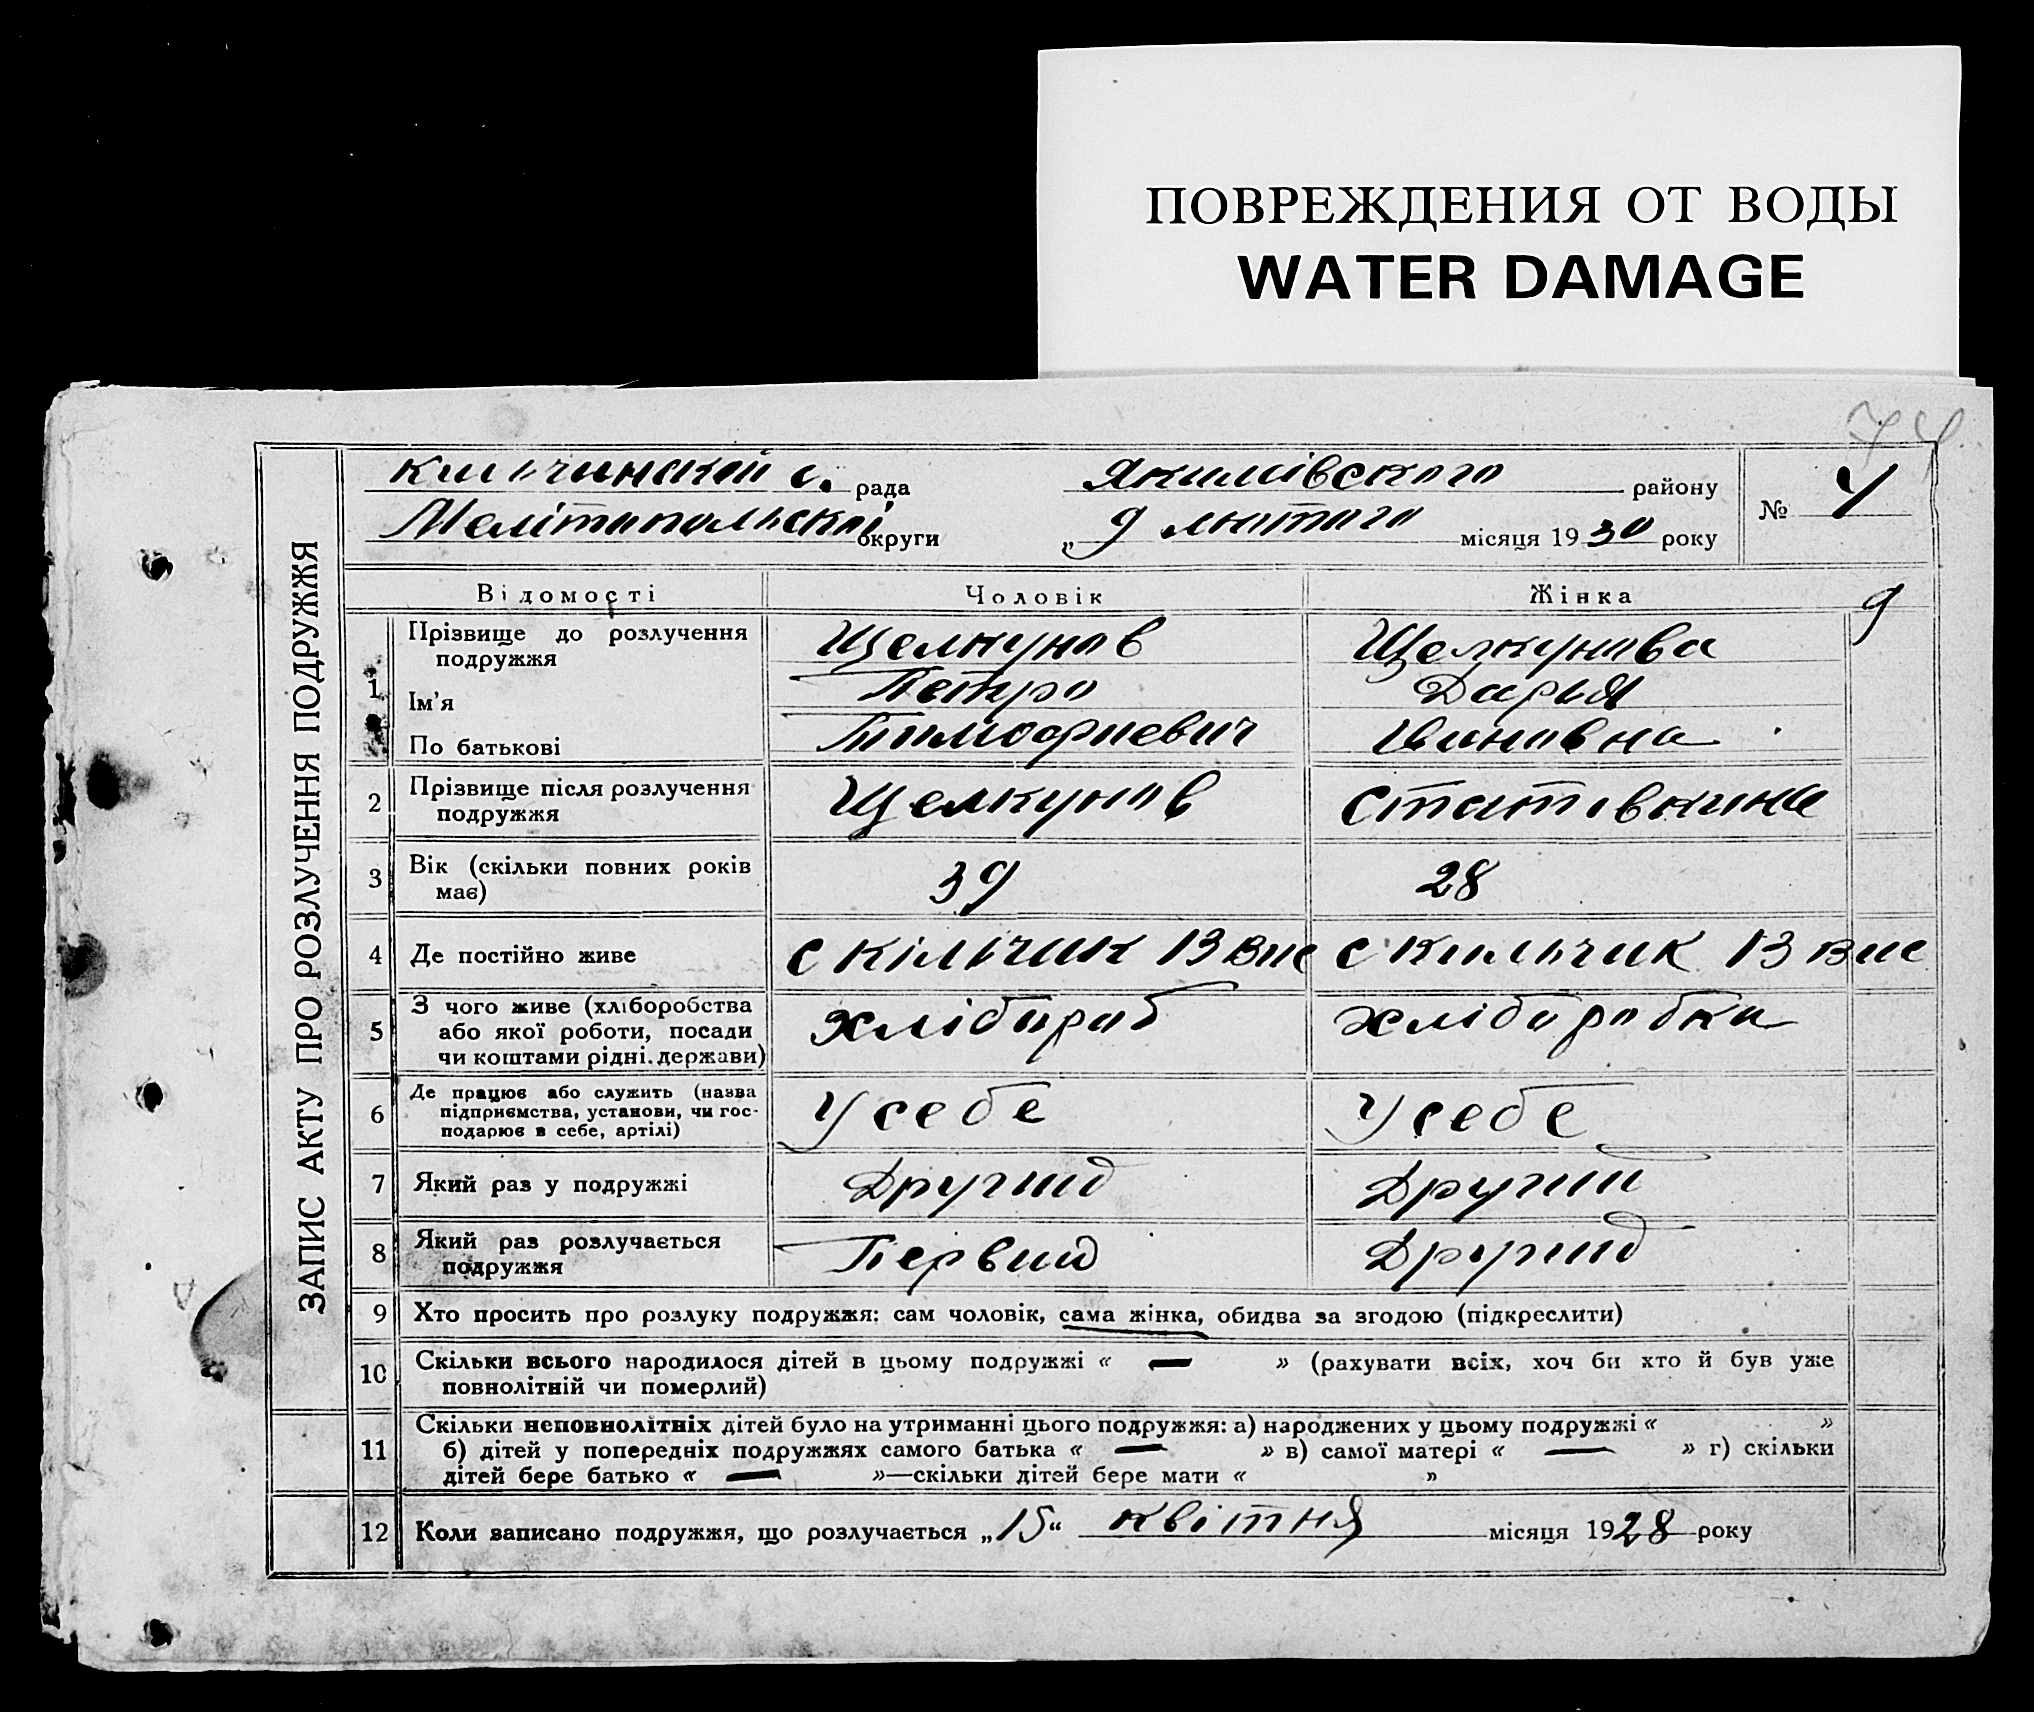 ПОВРЕЖДЕНИЯ ОТ ВОДЫ
WATER DAMAGE
74
Кильчинской с. рада Якимівского району № 4
Мелітопольской округи „9 лютого місяця 1930 року
ЗАПИС АКТУ ПРО РОЗЛУЧЕННЯ ПОДРУЖЖЯ
Відомості Чоловік Жінка 9
1 Прізвище до розлучення подружжя Щелкунов Щелкунова
Ім'я Петро Дарья
По батькові Тимофиевич Ивановна
2 Прізвище після розлучення подружжя Щелкунов
3 Вік (скільки повних років має) 39 28
4 Де постійно живе с Кільчик 13 с Кильчик 13
5 З чого живе (хліборобства або якої роботи, посади чи коштами рідні. держави) хлібороб хлібо робка
6 Де працює або служить (назва підприємства, установи, чи господарює в себе, артілі) У себе У себе
7 Який раз у подружжі Другий Другий
8 Який раз розлучається подружжя Первий Другий
9 Хто просить про розлуку подружжя: сам чоловік, сама жінка, обидва за згодою (підкреслити)
10 Скільки всього народилося дітей в цьому подружжі « — » (рахувати всіх, хоч би хто й був уже
повнолітній чи померлий)
11 Скільки неповнолітніх дітей було на утриманні цього подружжя: а) народжених у цьому подружжі « »
б) дітей у попередніх подружжях самого батька « — » в) самої матері « — » г) скільки
дітей бере батько « — »—скільки дітей бере мати « »
12 Коли записано подружжя, що розлучається „15“ квітня місяця 1928 року